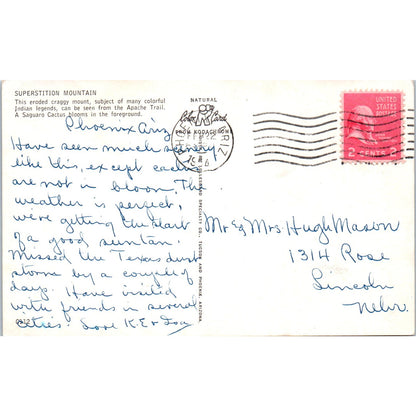 SUPERSTITION MOUNTAIN
This eroded craggy mount, subject of many colorful
Indian legends, can be seen from the Apache Trail.
A Saguaro Cactus blooms in the foreground.
Phoenix Ariz
Have seen much scenery
like this, except cactus
are not in bloom. The
weather is perfect,
we're getting the start
of a good suntan.
Missed the Texas dust
storm by a couple of
days. Have visited
with friends in several
cities. Love K.E &
NATURAL
Color Cards
FROM KODACHROME
ARIZ
SPECIALTY CO., TUCSON AND PHOENIX, ARIZONA
UNITED
STATES
POSTAGE
2 CENTS 2
Mr & Mrs Hugh Mason
1314 Rose
Lincoln
Nebr.